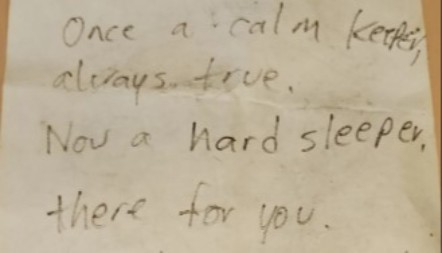 Once a calm keeper,
always true.
Now a hard sleeper,
there for you.